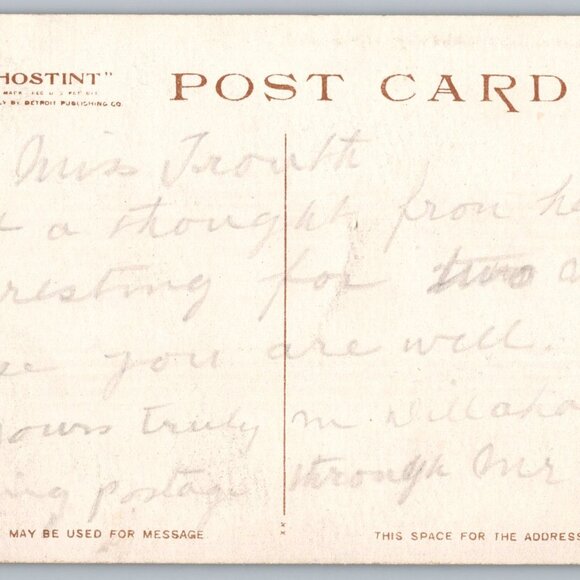 HOSTINT"
MARK REG. U.S. PAT. OFF.
LY BY DETROIT PUBLISHING CO.
POST CARD
Miss Trouth
a thought from he
resting for two a
se you are well.
yours truly m Willaho
ing postage through Mr
MAY BE USED FOR MESSAGE
THIS SPACE FOR THE ADDRESS